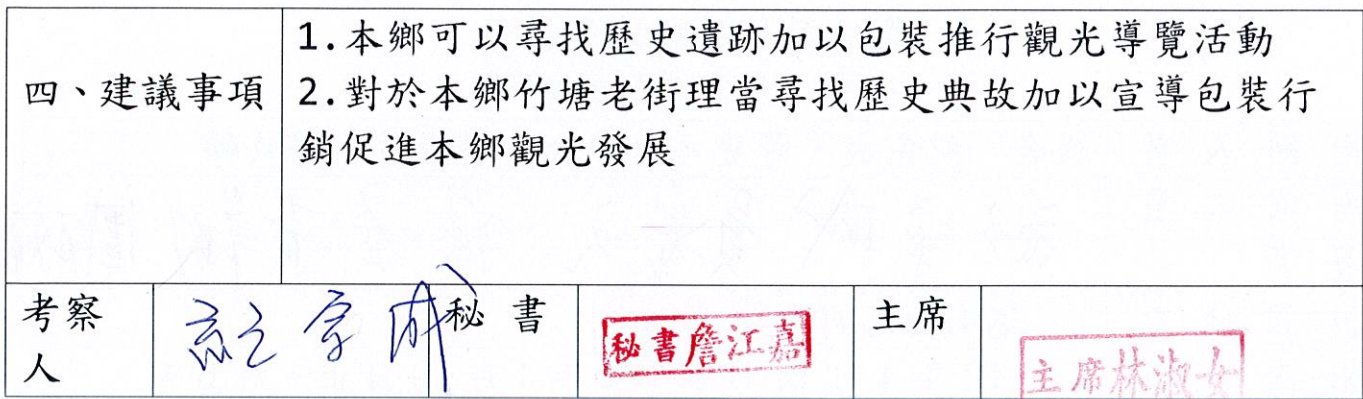 四、建議事項
1.本鄉可以尋找歷史遺跡加以包裝推行觀光導覽活動
2.對於本鄉竹塘老街理當尋找歷史典故加以宣導包裝行
銷促進本鄉觀光發展
考察
人
秘書
秘書詹江嘉
主席
主席林淑女